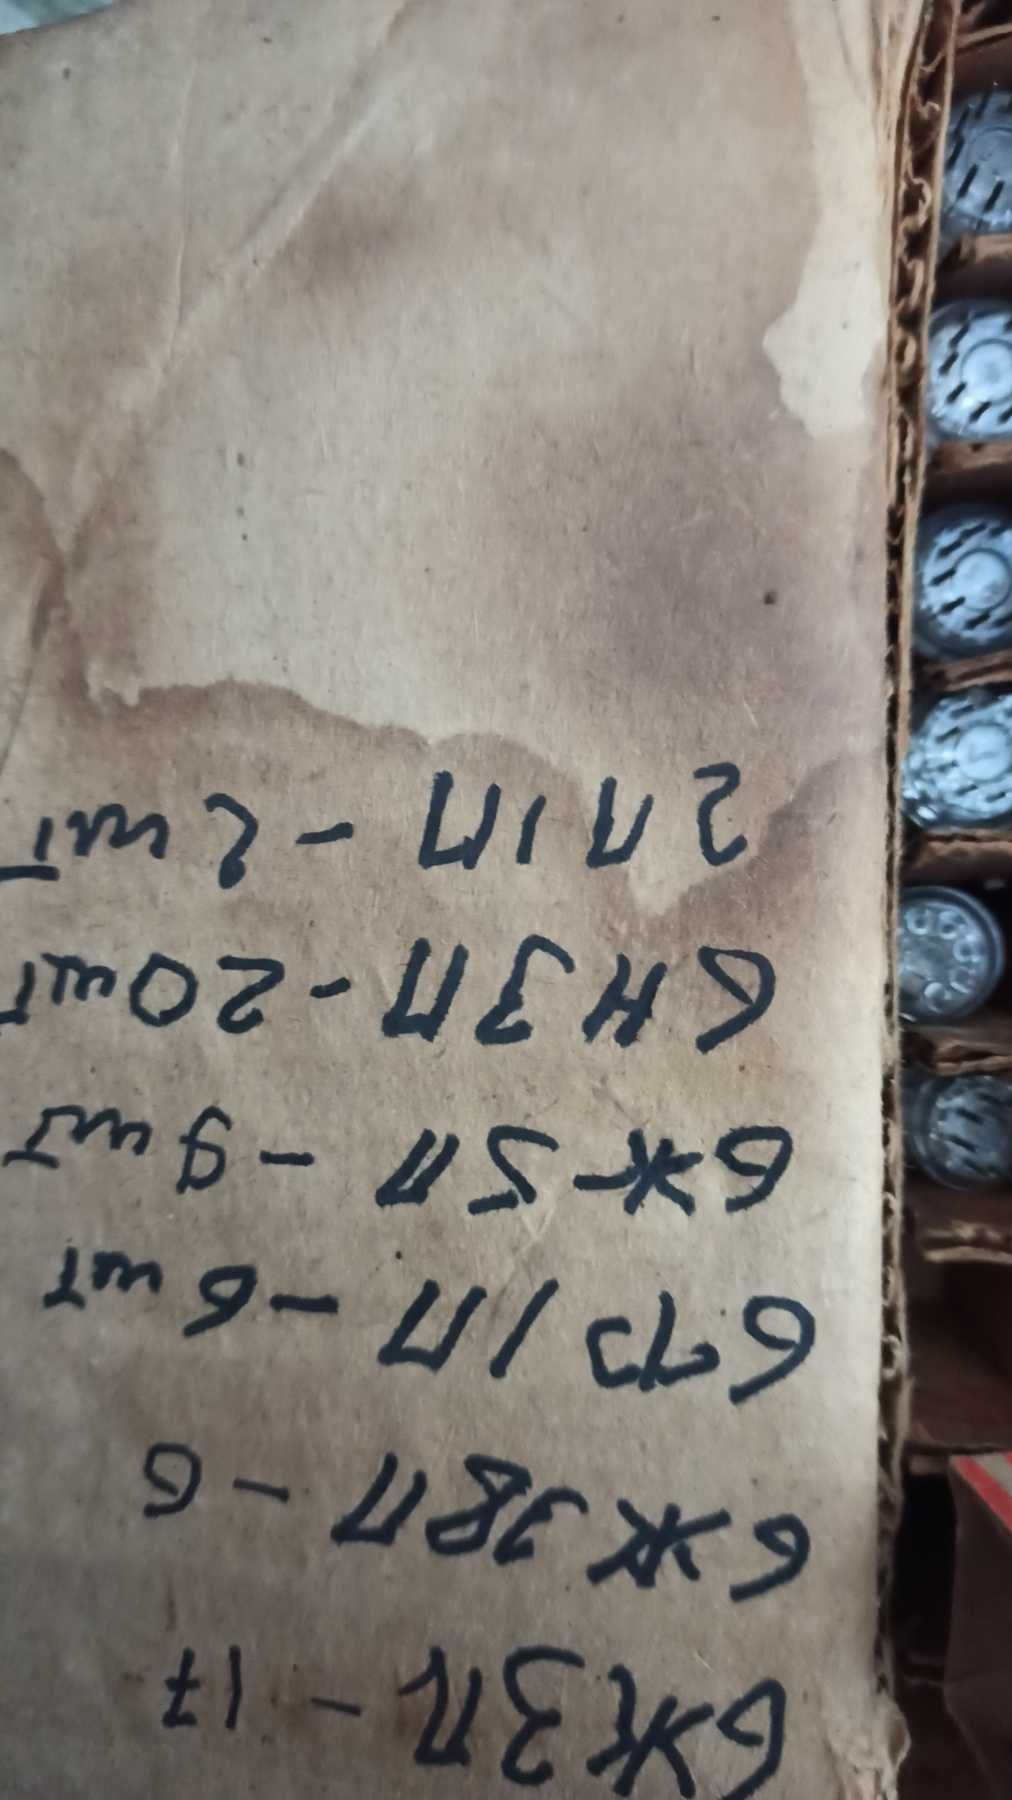 6Ж3П - 17
6Ж38П - 6
6Ф1П - 6 шт
6Ж5П - 9 шт
6Н3П - 20 шт
2П1П - 2 шт